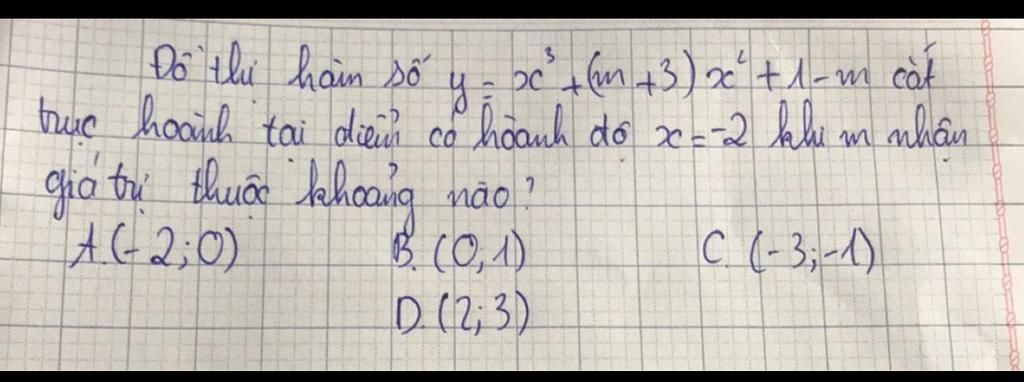 Đồ thị hàm số y = x³ + (m + 3) x² + 1 - m cắt
trục hoành tại điểm có hoành độ x = -2 khi m nhận
giá trị thuộc khoảng nào?
A. (-2; 0) B. (0; 1) C. (-3; -1)
D. (2; 3)